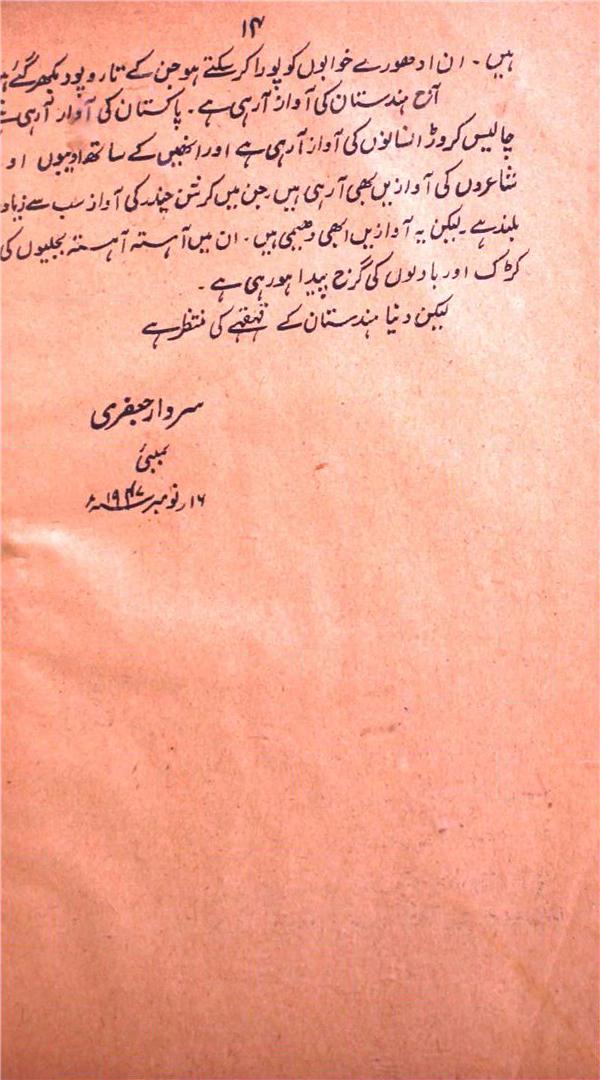 ۱۴
ہیں ۔ ان ادھورے خوابوں کو پورا کر سکتے ہو جن کے تار و پود بکھر گئے
آج ہندستان کی آواز آرہی ہے ۔ پاکستان کی آواز آرہی
چالیس کروڑ انسانوں کی آواز آرہی ہے اور انھیں کے ساتھ ادیبوں او
شاعروں کی آوازیں بھی آرہی ہیں ۔ جن میں کرشن چندر کی آواز سب سے زیاد
بلند ہے ۔ لیکن یہ آوازیں ابھی دھیمی ہیں ۔ ان میں آہستہ آہستہ بجلیوں کی
کڑک اور بادلوں کی گرج پیدا ہو رہی ہے ۔
لیکن دنیا ہندستان کے قہقہے کی منتظر ہے
سردار جعفری
بمبئی
۱۶ر نومبر ۱۹۴۷ء